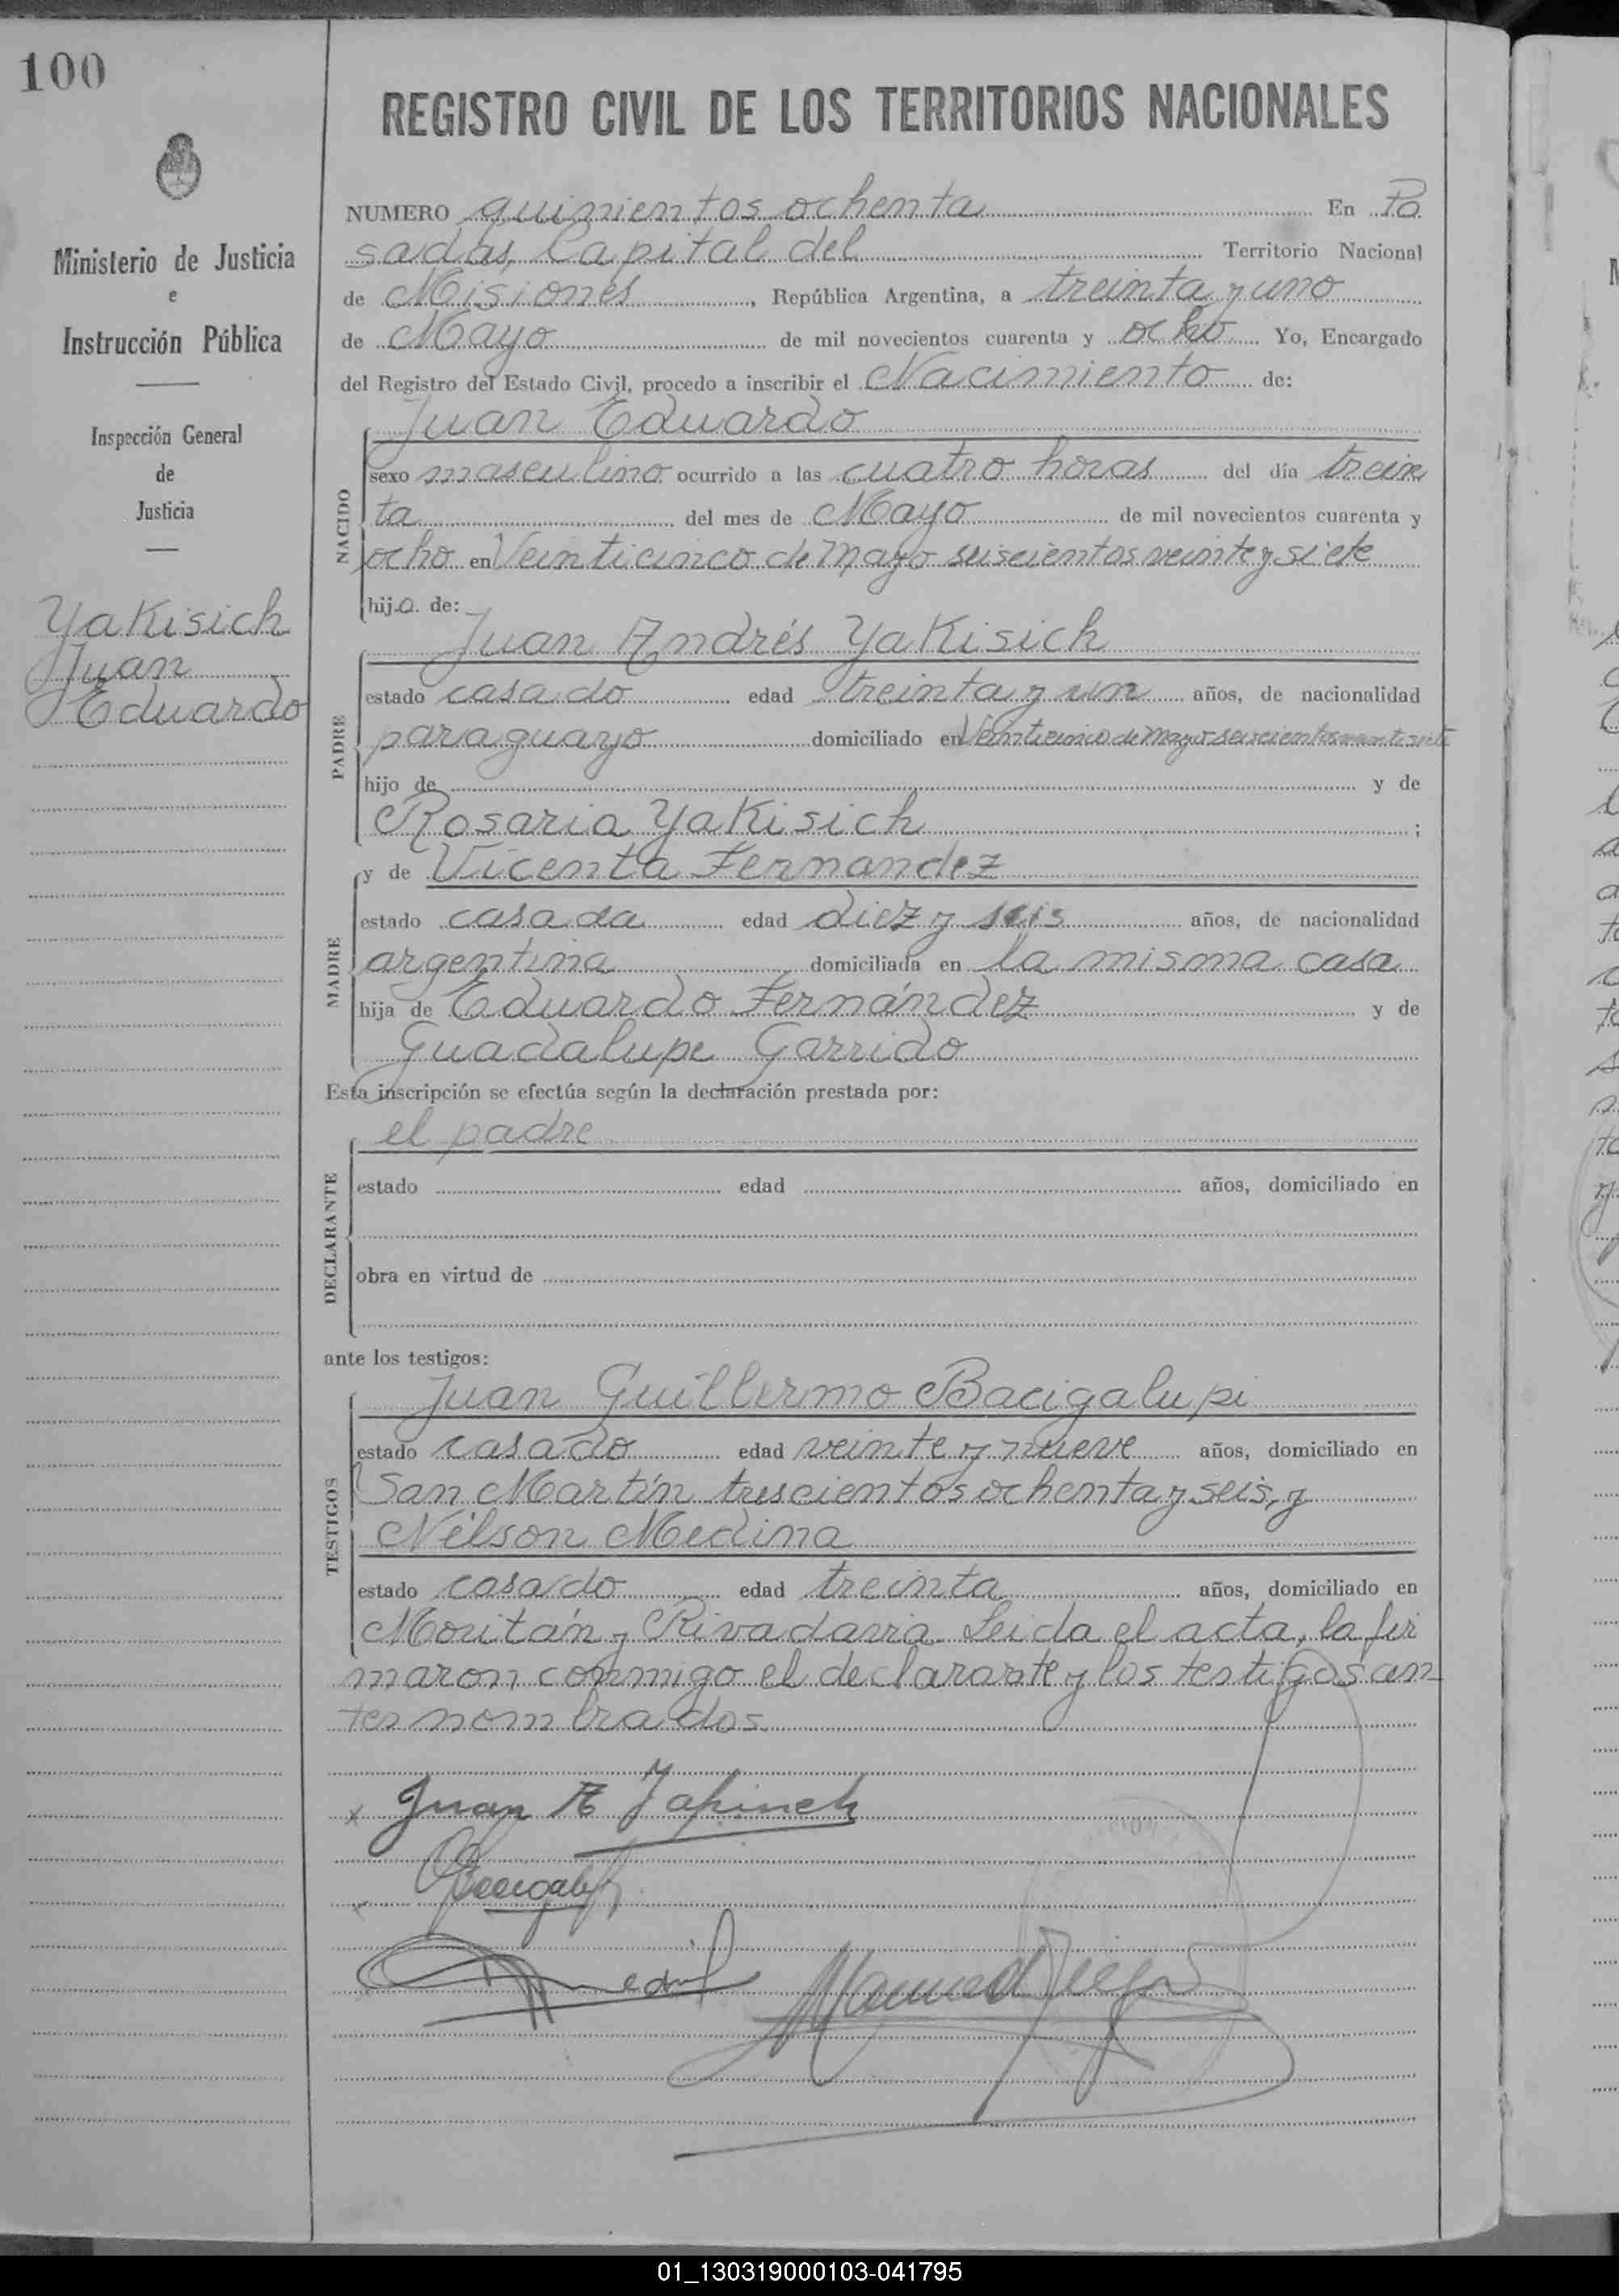 100
REGISTRO CIVIL DE LOS TERRITORIOS NACIONALES
Ministerio de Justicia
e
Instrucción Pública
Inspección General
de
Justicia
Yakisich
Juan
Eduardo
NUMERO quinientos ochenta En Po
sadas, Capital del Territorio Nacional
de Misiones, República Argentina, a treinta y uno
de Mayo de mil novecientos cuarenta y ocho Yo, Encargado
del Registro del Estado Civil, procedo a inscribir el Nacimiento de:
NACIDO
Juan Eduardo
sexo masculino ocurrido a las cuatro horas del día trein
ta del mes de Mayo de mil novecientos cuarenta y
ocho en Veinticinco de Mayo seiscientos veinte y siete
hijo de:
PADRE
Juan Andrés Yakisich
estado casado edad treinta y un años, de nacionalidad
paraguayo domiciliado en Veinticinco de Mayo seiscientos veinte siete
hijo de y de
Rosaria Yakisich ;
MADRE
y de Vicenta Fernandez
estado casada edad diez y seis años, de nacionalidad
argentina domiciliada en la misma casa
hija de Eduardo Fernández y de
Guadalupe Garrido
Esta inscripción se efectúa según la declaración prestada por:
DECLARANTE
el padre
estado edad años, domiciliado en
obra en virtud de
ante los testigos:
TESTIGOS
Juan Guillermo Bacigalupi
estado casado edad veinte y nueve años, domiciliado en
San Martín trescientos ochenta y seis, y
Nélson Medina
estado casado edad treinta años, domiciliado en
Moritán y Rivadavia. Leida el acta, la fir
maron conmigo el declarante y los testigos an-
tes nombrados.
x Juan A
x
01_130319000103-041795